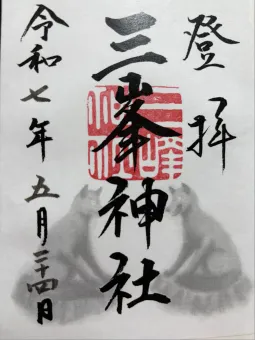 登拝
三峯神社
令和七年五月二十四日